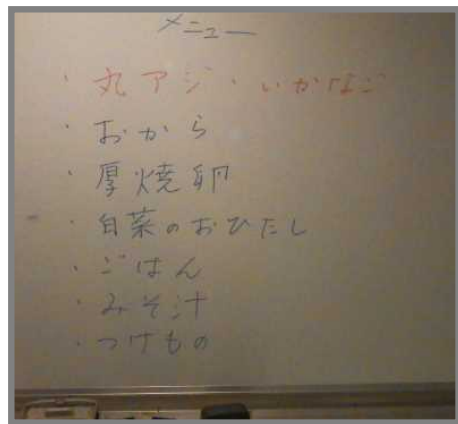 メニュー
・丸アジ・いかなご
・おから
・厚焼卵
・白菜のおひたし
・ごはん
・みそ汁
・つけもの